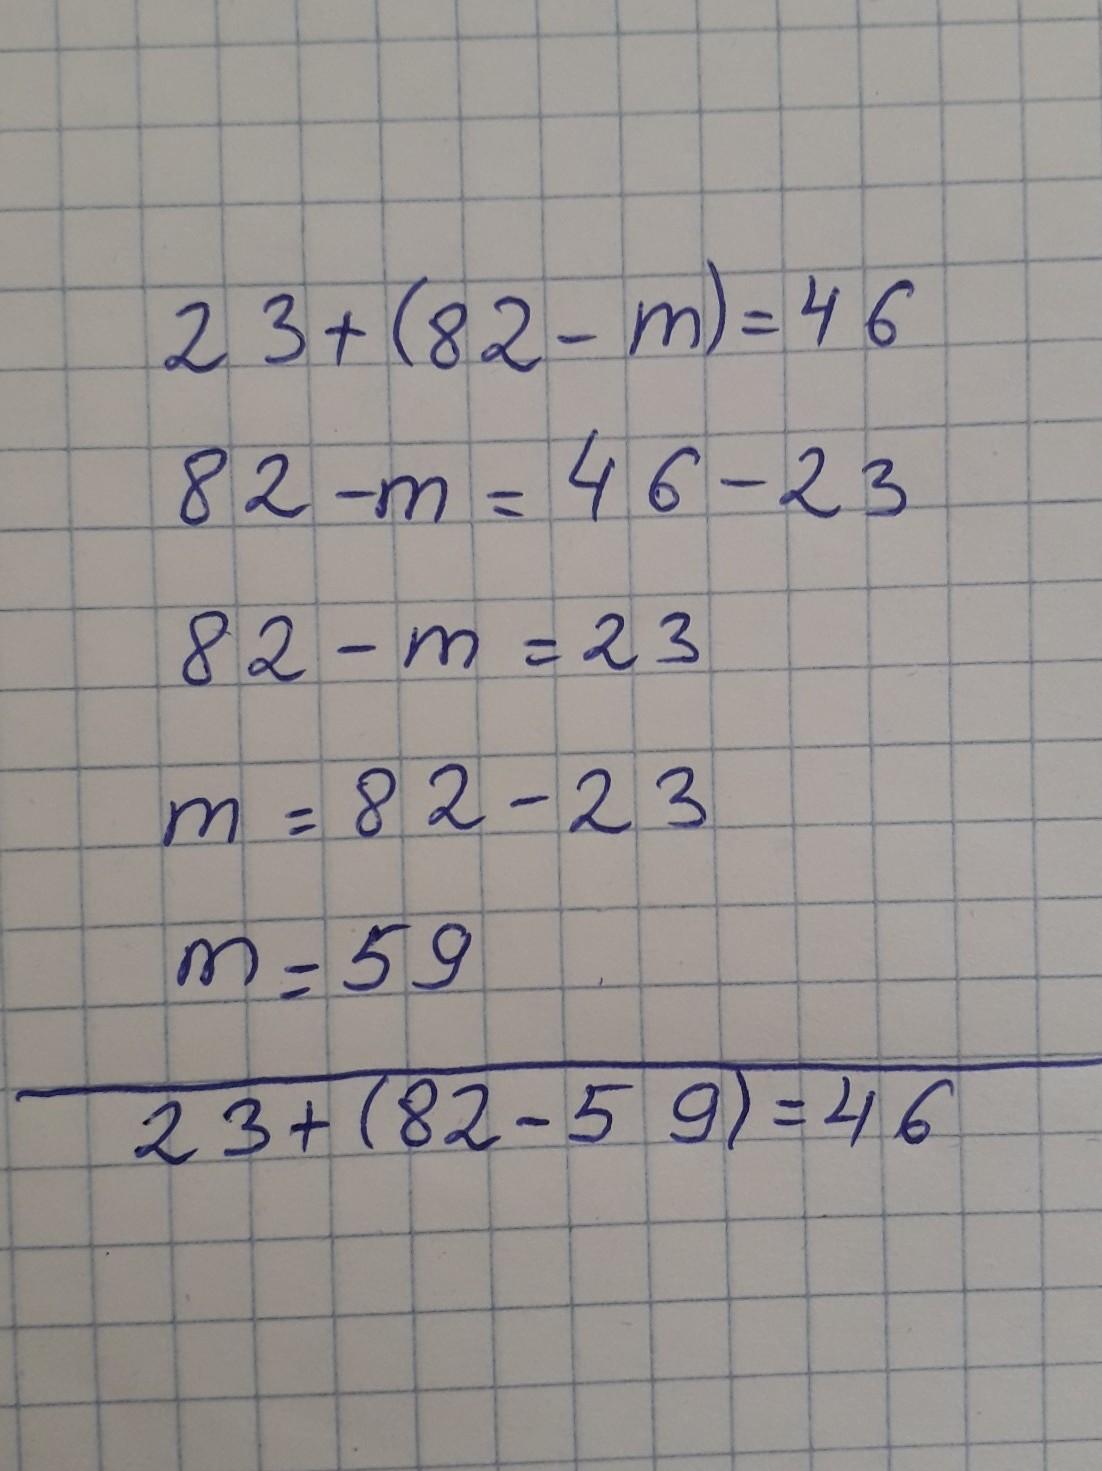 23+(82-m)=46
82-m=46-23
82-m=23
m=82-23
m=59
23+(82-59)=46